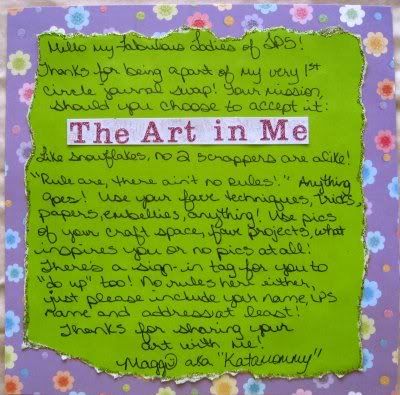 Hello my fabulous Ladies of LPS!
Thanks for being apart of my very 1st
circle journal swap! Your mission,
should you choose to accept it:
The Art in Me
Like snowflakes, no 2 scrappers are alike!
"Rule are, there ain't no Rules!" Anything
goes! Use your fave techniques, tricks,
papers, embellies, anything! Use pics
of your craft space, fave projects, what
inspires you or no pics at all!
There's a sign-in tag for you to
"do up" too! No rules here either,
just please include your name, LPS
name and address at least!
Thanks for sharing your
art with me!
~Maggi aka "Katamommy"